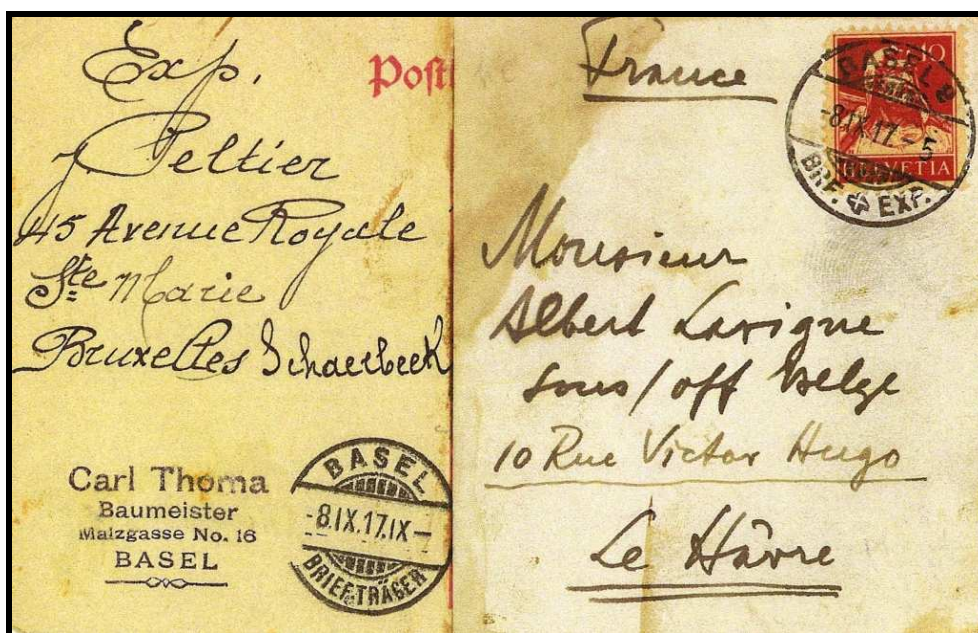 Exp.
J Peltier
45 Avenue Royale
Ste Marie
Bruxelles Schaerbeek
Carl Thoma
Baumeister
Malzgasse No. 16
BASEL
BASEL
-8.IX.17.IX-
BRIEFTRÄGER
Post
France
10
HELVETIA
BASEL 2
-8.IX.17.-5
BRF. EXP.
Monsieur
Albert Lavigne
sous/off belge
10 Rue Victor Hugo
Le Hâvre